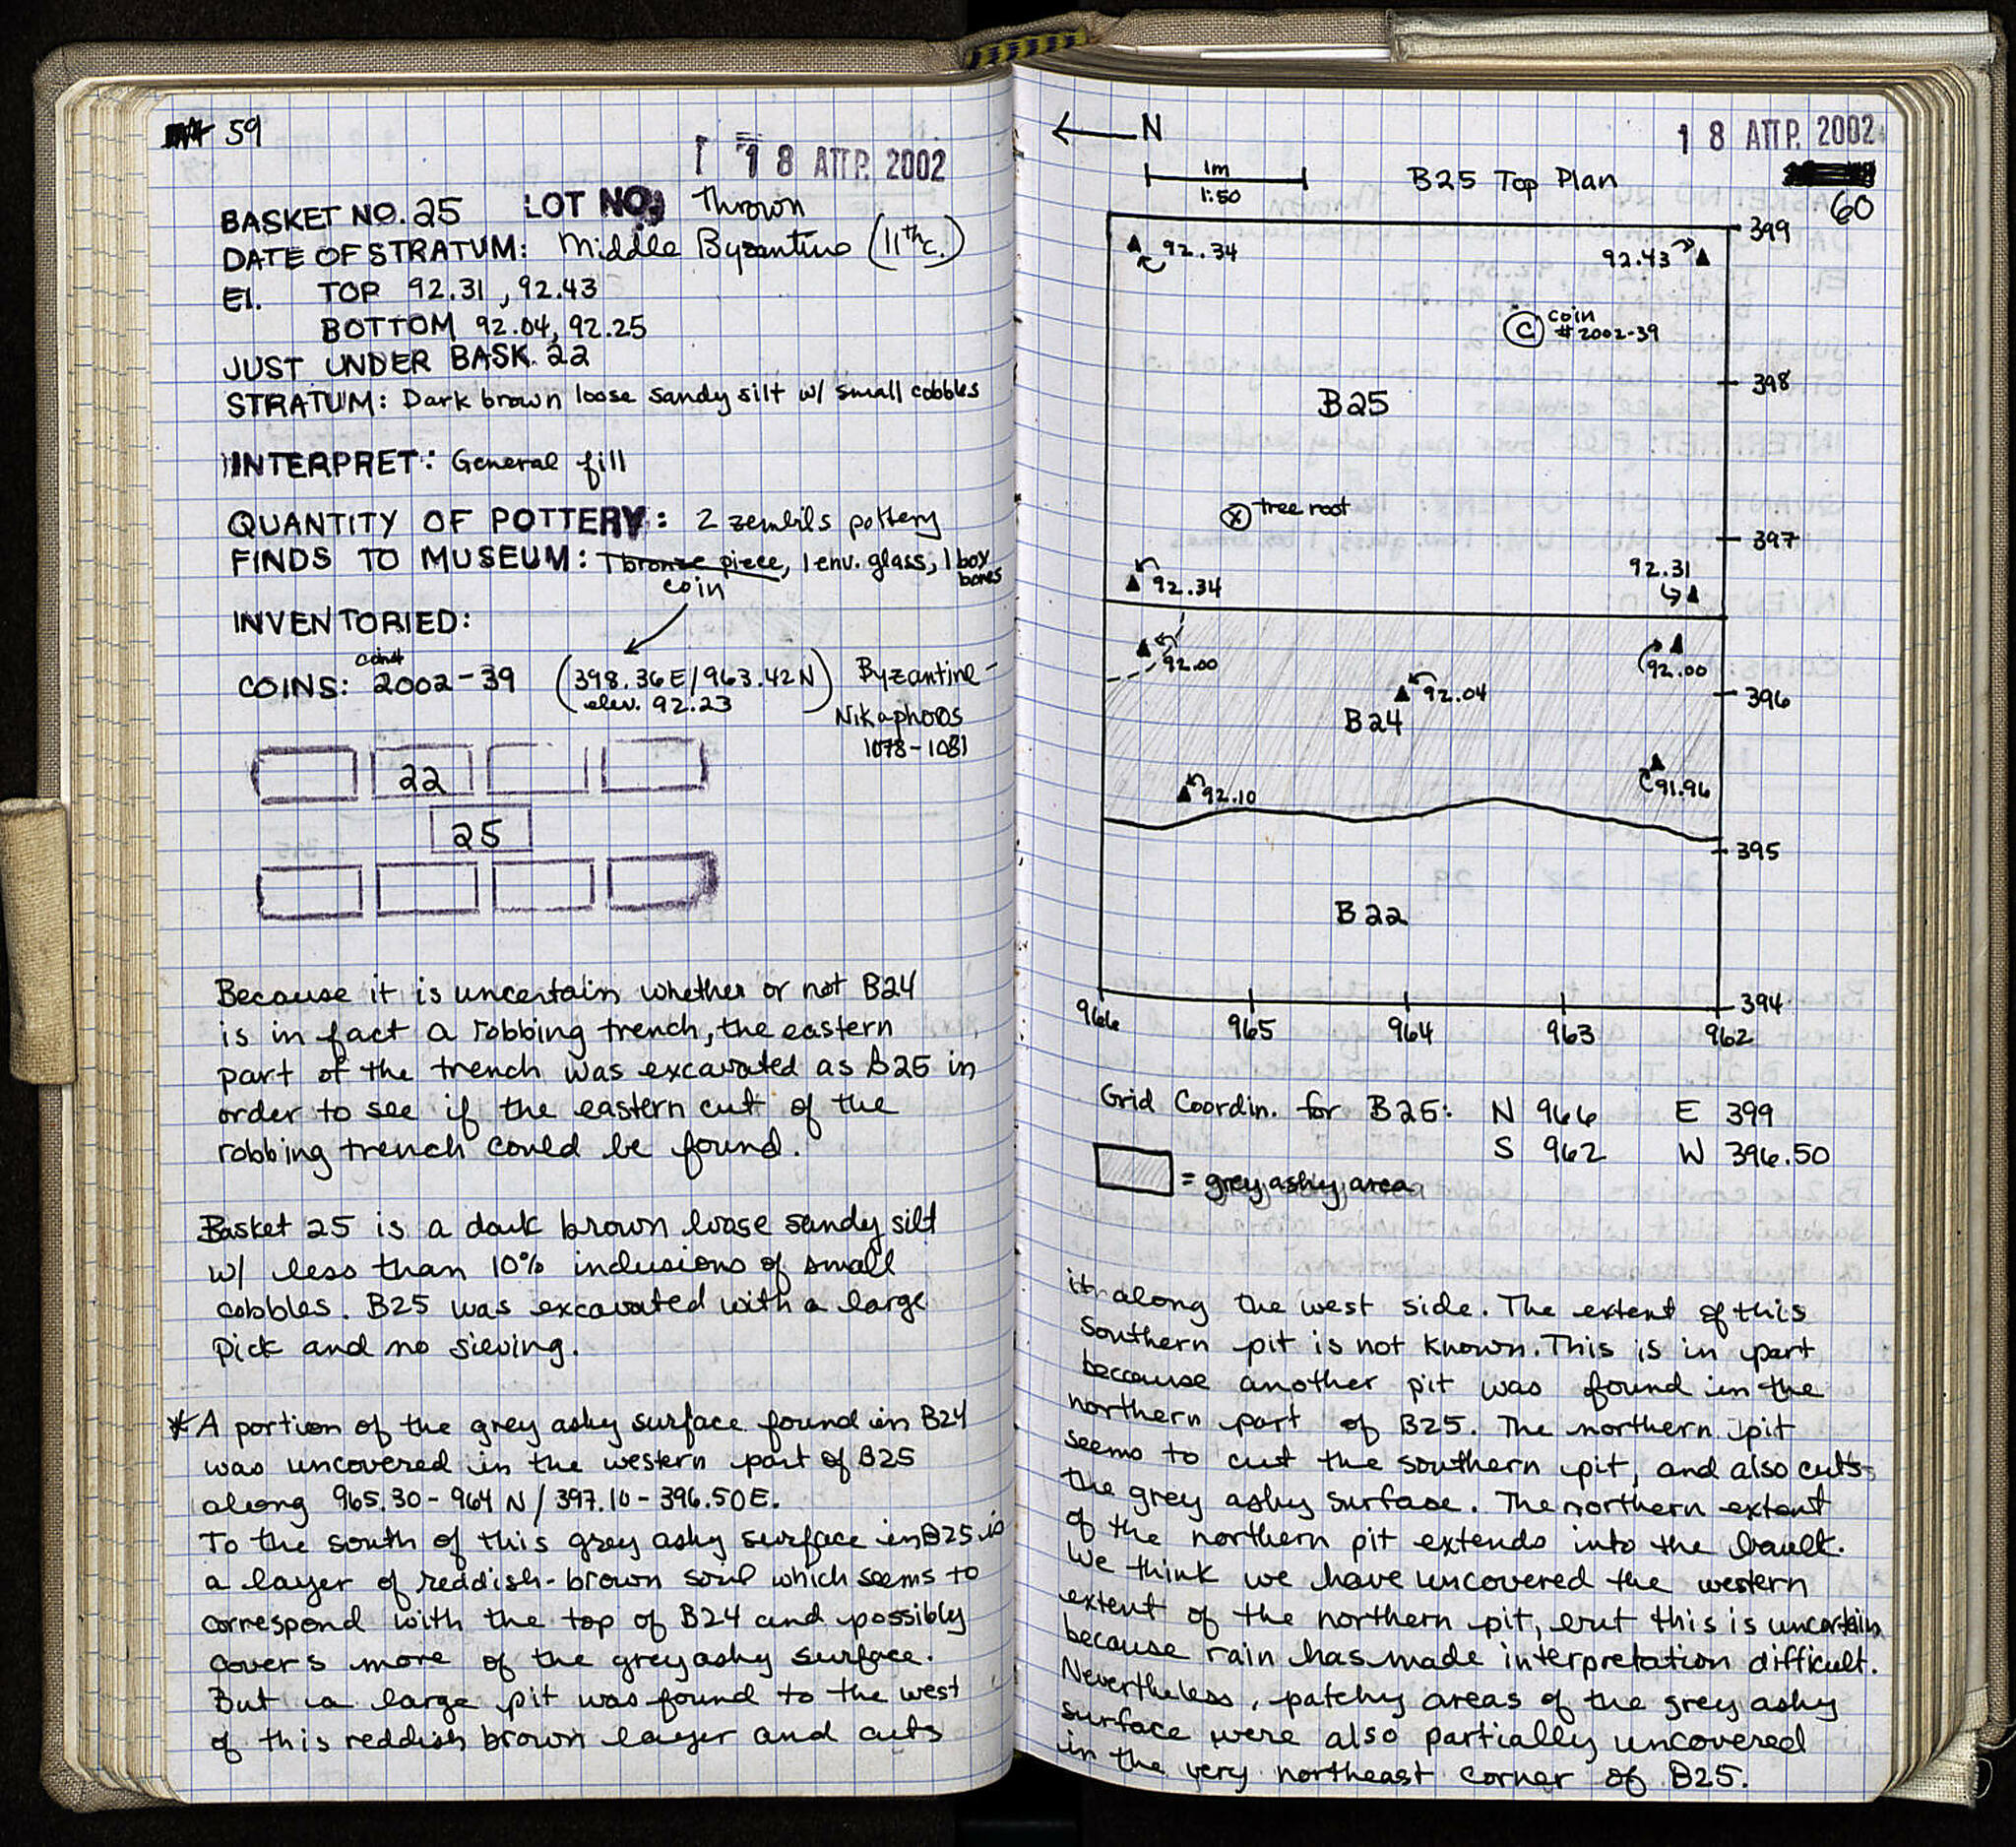 59
18 ΑΠΡ. 2002
BASKET NO. 25 LOT NO: Thrown
DATE OF STRATUM: Middle Byzantine (11th c.)
El. TOP 92.31, 92.43
BOTTOM 92.04, 92.25
JUST UNDER BASK. 22
STRATUM: Dark brown loose sandy silt w/ small cobbles
INTERPRET: General fill
QUANTITY OF POTTERY: 2 zembils pottery
FINDS TO MUSEUM: 1 bronze piece, 1 env. glass, 1 box bones
coin
INVENTORIED:
COINS: 2002-39 (398.36E/963.42N) Byzantine -
elev. 92.23
Nikaphoros
1078-1081
22
25
Because it is uncertain whether or not B24
is in fact a robbing trench, the eastern
part of the trench was excavated as B25 in
order to see if the eastern cut of the
robbing trench could be found.
Basket 25 is a dark brown loose sandy silt
w/ less than 10% inclusions of small
cobbles. B25 was excavated with a large
pick and no sieving.
* A portion of the grey ashy surface found in B24
was uncovered in the western part of B25
along 965.30-964 N/397.10-396.50E.
To the south of this grey ashy surface in B25 is
a layer of reddish-brown soul which seems to
correspond with the top of B24 and possibly
covers more of the grey ashy surface.
But a large pit was found to the west
of this reddish brown layer and cuts
← N
18 ΑΠΡ. 2002
1m
1:50
B25 Top Plan
60
399
92.34
92.43
C coin
# 2002-39
398
B25
x tree root
397
92.34
92.31
92.00
92.00
92.04
396
B24
92.10
91.96
395
B22
394
966 965 964 963 962
Grid Coordin. for B25: N 966 E 399
S 962 W 396.50
= grey ashy area
it along the west side. The extent of this
southern pit is not known. This is in part
beccause another pit was found in the
northern part of B25. The northern pit
seems to cut the southern pit, and also cuts
the grey ashy surface. The northern extent
of the northern pit extends into the baulk.
We think we have uncovered the western
extent of the northern pit, but this is uncertain
because rain has made interpretation difficult.
Nevertheless, patchy areas of the grey ashy
surface were also partially uncovered
in the very northeast corner of B25.